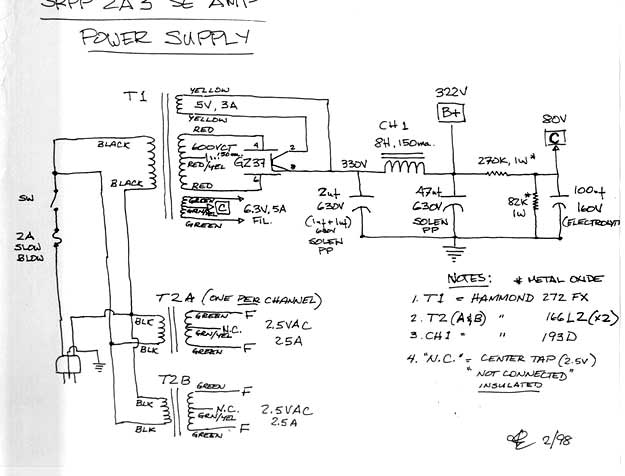 SRPP 2A3 SE AMP
POWER SUPPLY
T1
YELLOW
5V, 3A
YELLOW
RED
600VCT
150ma.
RED/YEL
RED
GREEN
GRN/YEL
C
6.3V, 5A
FIL.
GREEN
BLACK
BLACK
4
2
GZ37
8
6
SW
2A
SLOW
BLOW
CH 1
8H, 150ma.
330V
322V
B+
80V
C
270K, 1W*
2uf
630V
(1uf+1uf)
630V
SOLEN
PP
47uf
630V
SOLEN
PP
82K*
1W
100uf
160V
(ELECTROLYTI
T2A (ONE PER CHANNEL)
BLK
BLK
GREEN
F
N.C.
GRN/YEL
GREEN
F
2.5VAC
2.5A
T2B
BLK
BLK
GREEN
F
N.C.
GRN/YEL
GREEN
F
2.5VAC
2.5A
NOTES: * METAL OXIDE
1. T1 = HAMMOND 272 FX
2. T2 (A&B) " 166L2 (x2)
3. CH1 = " 193D
4. "N.C." = CENTER TAP (2.5V)
"NOT CONNECTED"
INSULATED
2/98